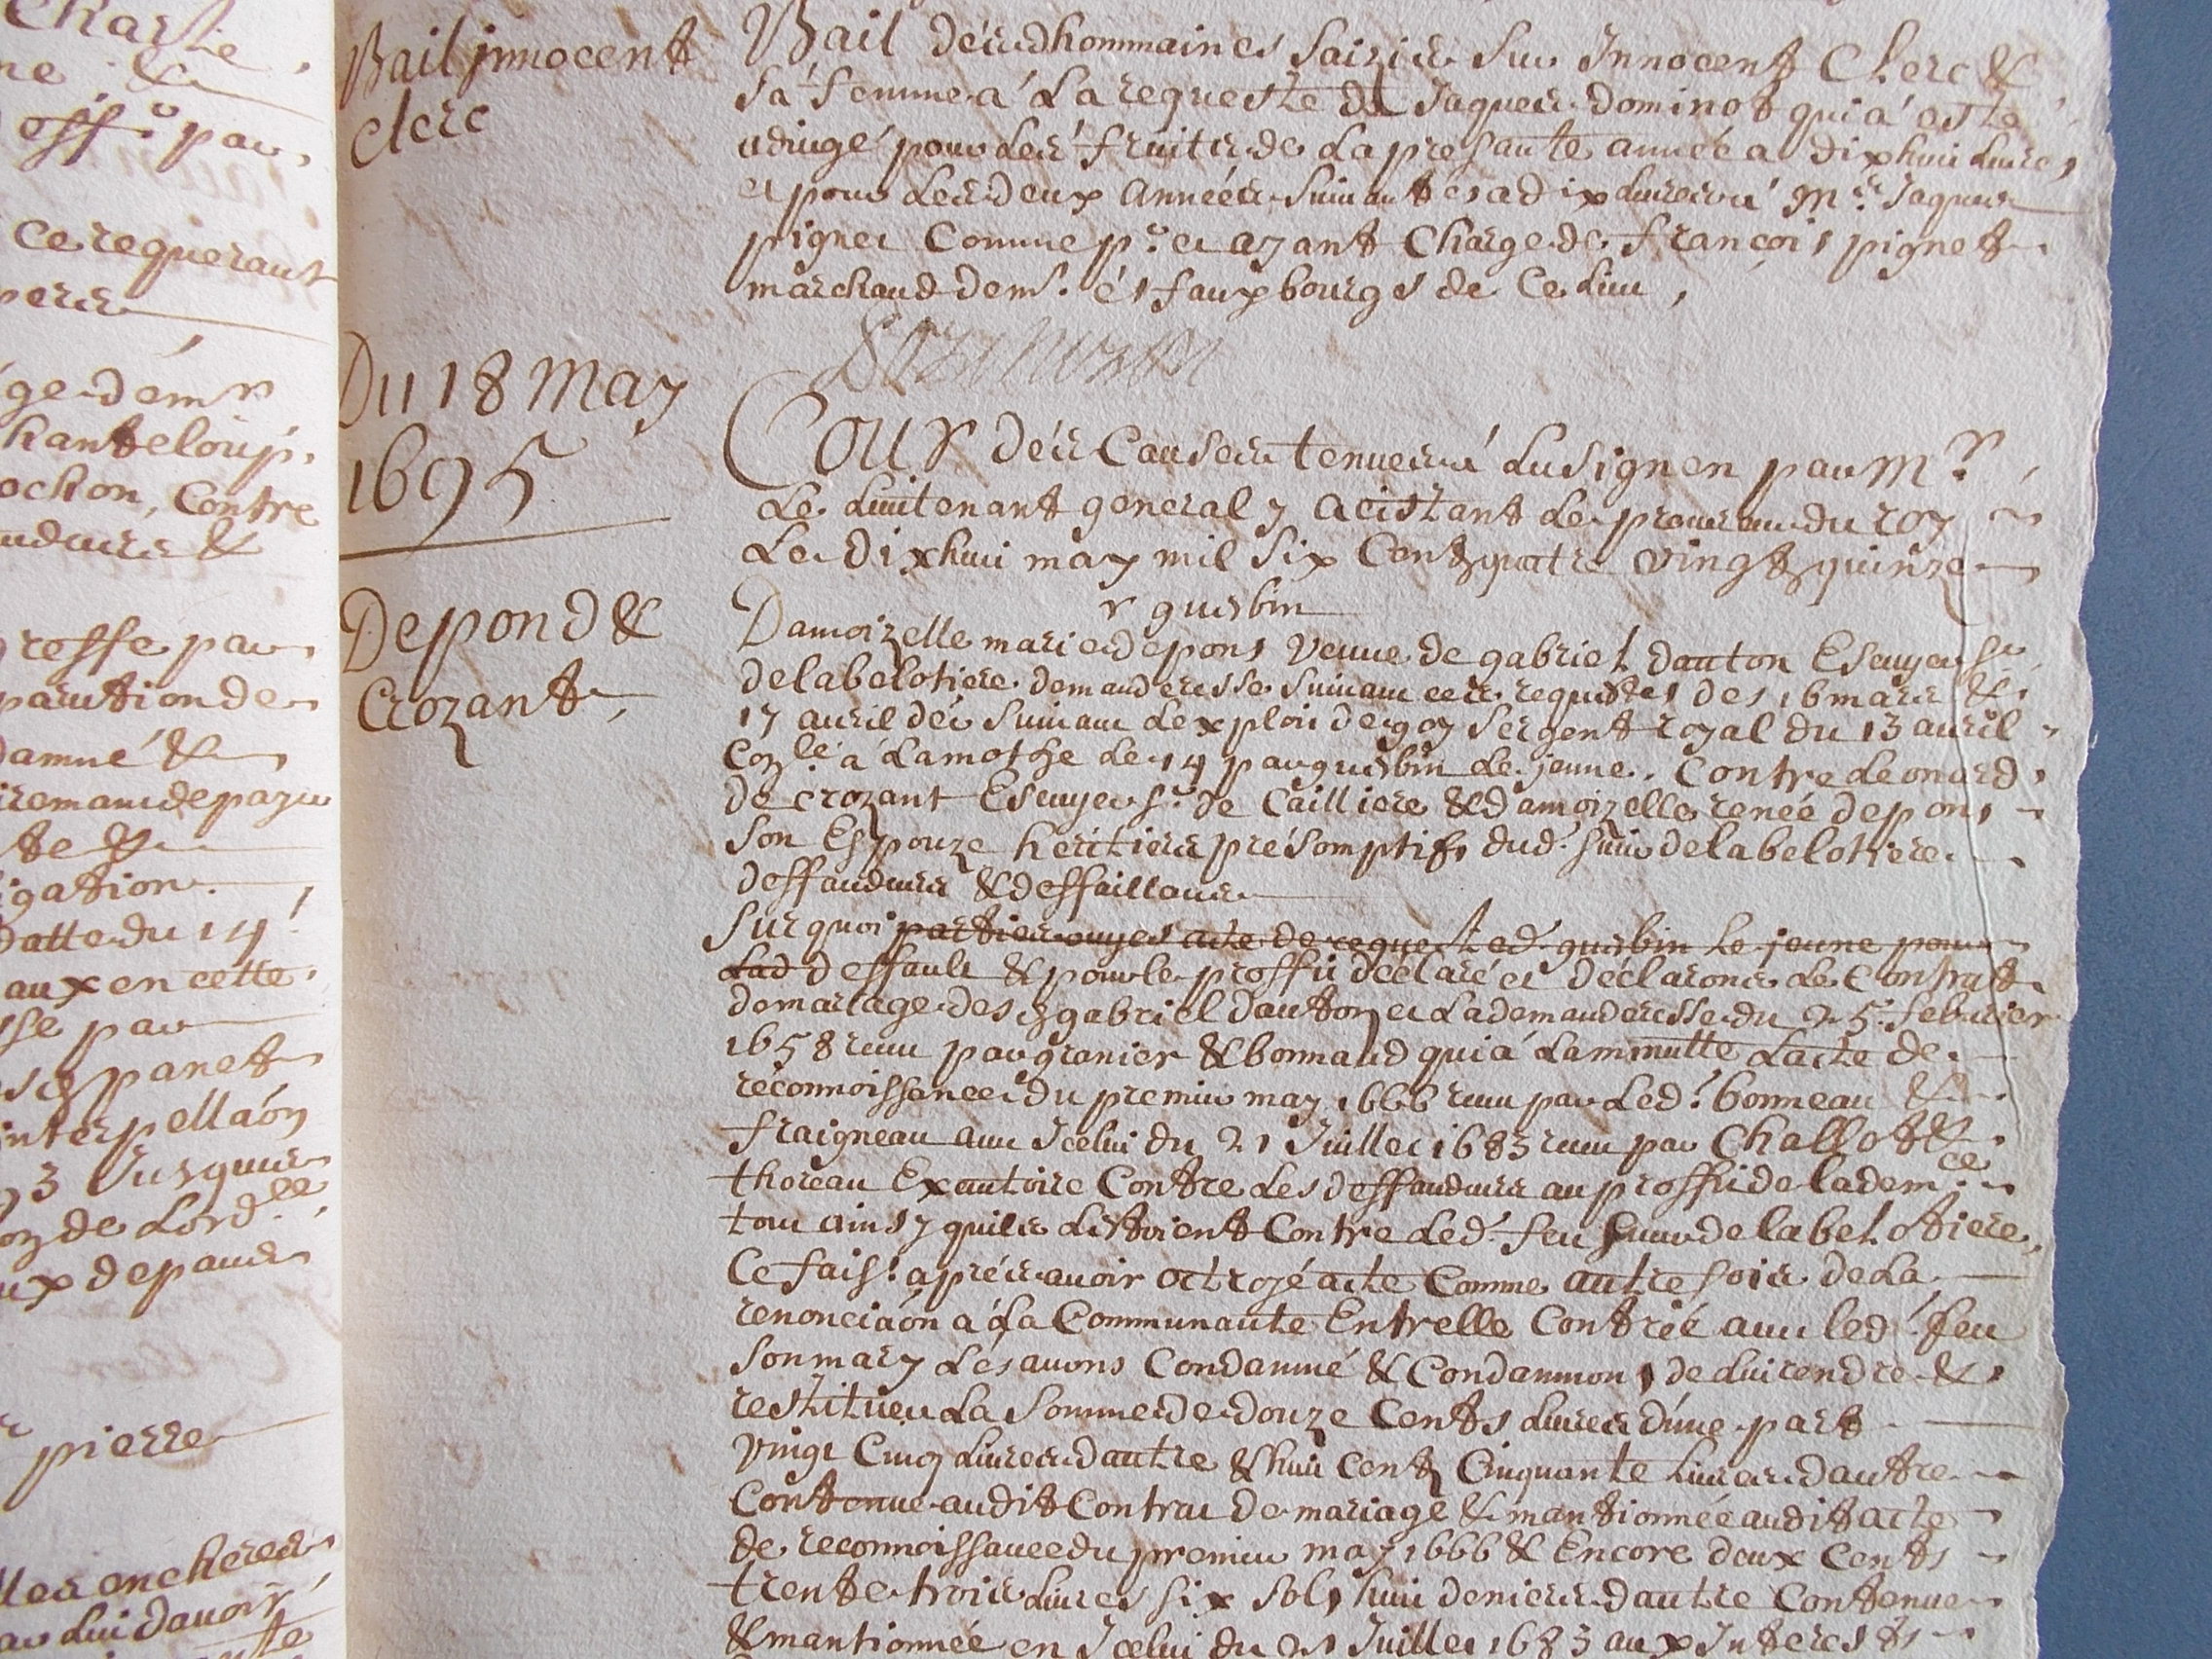 Charlie
ne &
off.r par
ce requerant
hanteloup.
ochon, Contre
greffe par
parution de
damné &
iremam de paye
te &
igation.
Datte du 14
aux en cette
sse par
panet
interpellaón
93 Jusques
on de Lord.lle
ux depands
pierre
lles encheres
lui davoir
Bail jnnocent
clerc
Bail des dhommaines saizis sur Innocent Clerc &
sa femme a La requeste de Jaques dominot qui a esté
adiugé pour les fruits de La presante année a dix huit Liures
et pour Les deux Années suiuantes a dix liures a Mr. Jaques
pignet Comme pr. et ayant Charge de françois pignet
marchand dem.t és fauxbourgs de Ce Lieu,
Du 18 May
1695
Cour des Causes tenues a Lusignen par Mr.
Le Lieutenant general y acistant Le procureur du roy
Le dix huit may mil six Cent quatre vingt quinze
Depond &
Crozant
r guesbin
Damoizelle marie depons veuue de gabriel dauton Escuyer sr
delabelotiere demanderesse suiuant ces requestes des 16 mars &
17 auril der suiuant Lexploit de goy sergent royal du 13 auril
Conlé a Lamothe Le 14 par guesbin Le jeune. Contre Leonard
de crozant Escuyer sr. de Cailliere & damoizelle renée depons
son Espouze heritiers présomptifs dud. sieur delabelotiere
deffandeurs & deffaillans
Surquoi parties ouyes acte de requeste d. guesbin le jeune pour
Lad deffault & pour le proffit déclaré et déclarons Le Contrat
de mariage des gabriel Dauton et La demanderesse du 25 feburier
1658 receu par granier & bonnaud qui a La minutte Lacte de
réconnoissance du premier may 1666 receu par Led. bonneau &
fraigneau auec Icelui du 21 Juillet 1683 receu par Challot &
thoreau Exautoire Contre Les deffandeurs au proffit de la dem.ce
tout ainsy quils Listoient Contre Led. feu sieur de labelotiere
Ce fais.t aprés auoir octroyé acte Comme autrefois de La
renonciaón a La Communauté Entrelle Contrée auec led. feu
son mary Les auons Condamné & Condamnons de Lui rendre &
restituer La Somme de douze Cents Liures dune part
vingt Cinq Liures dautre & huit Cent Cinquante Liures dautre
Contenue audit Contrat de mariage & mantionnée audit acte
de reconnoissance du premier may 1666 & Encore deux Cents
trente trois Liures six sols huit deniers dautre Contenue
& mantionnée en Icelui du 21 Juillet 1683 aux Interests